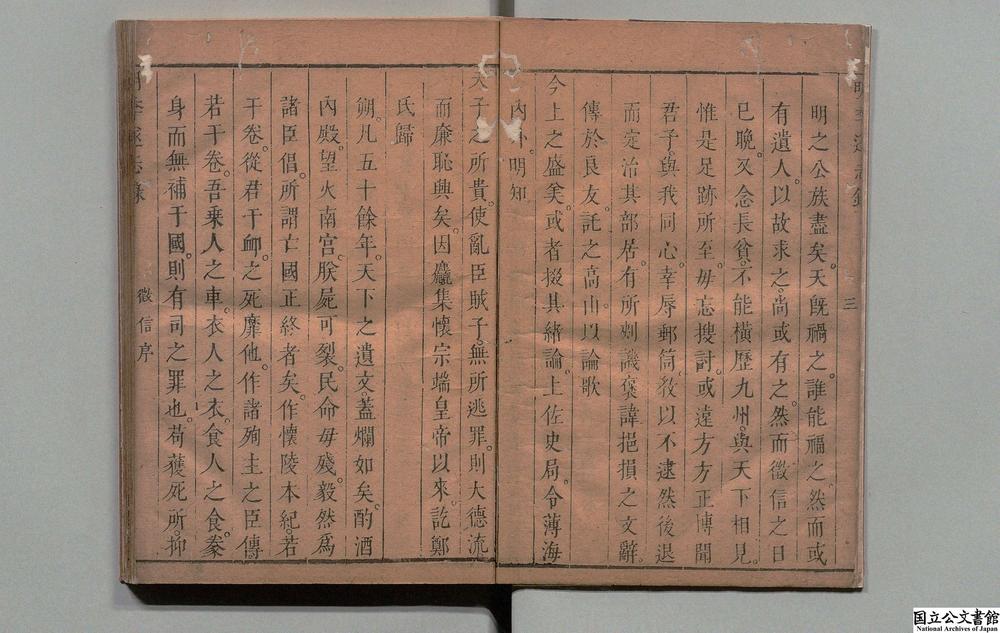 明季遂志錄
三
明之公族盡矣。天既禍之。誰能福之。然而或
有遺人。以故求之。尚或有之。然而徵信之日
已晚。又念長貧。不能橫歷九州。與天下相見。
惟是足跡所至。毋忘搜討。或遠方方正博聞
君子。與我同心。幸辱郵筒。敎以不逮然後退
而定治其部居。有所刺譏褒諱挹損之文辭。
傳於良友。託之高山。以論歌
今上之盛矣。或者掇其緒論。上佐史局。令薄海
內外。明知
天子之所貴。使亂臣賊子。無所逃罪。則大德流
而廉恥興矣。因麤集懷宗端皇帝以來。訖鄭
氏歸
朔。凡五十餘年。天下之遺文。蓋爛如矣。酌酒
內殿。望火南宮。朕屍可裂。民命毋殘。毅然爲
諸臣倡。所謂亡國正終者矣。作懷陵本紀。若
干卷。從君于卹。之死靡他。作諸殉主之臣傳
若干卷。吾乘人之車。衣人之衣。食人之食。豢
身而無補于國。則有司之罪也。苟獲死所。抑
明季遂志錄
徵信序
国立公文書館
National Archives of Japan